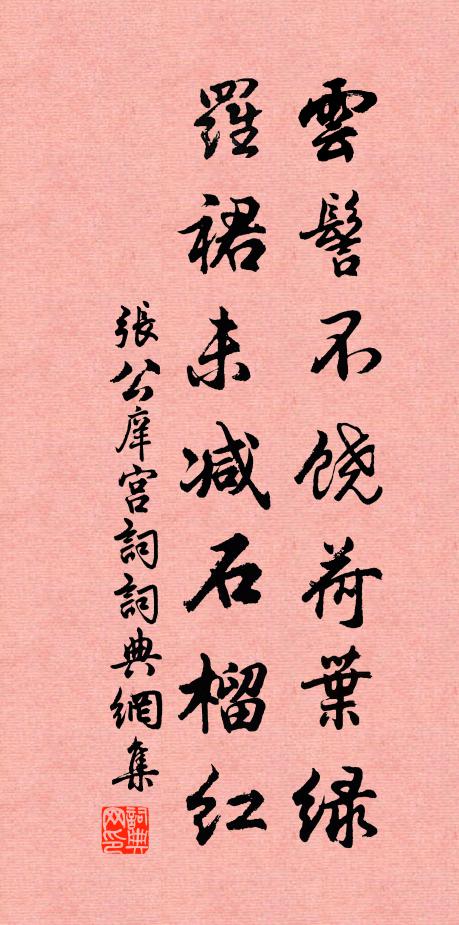 雲髻不饶荷葉緑
羅裙未减石榴红
張公庠宫詞詞典網集
詞典网印